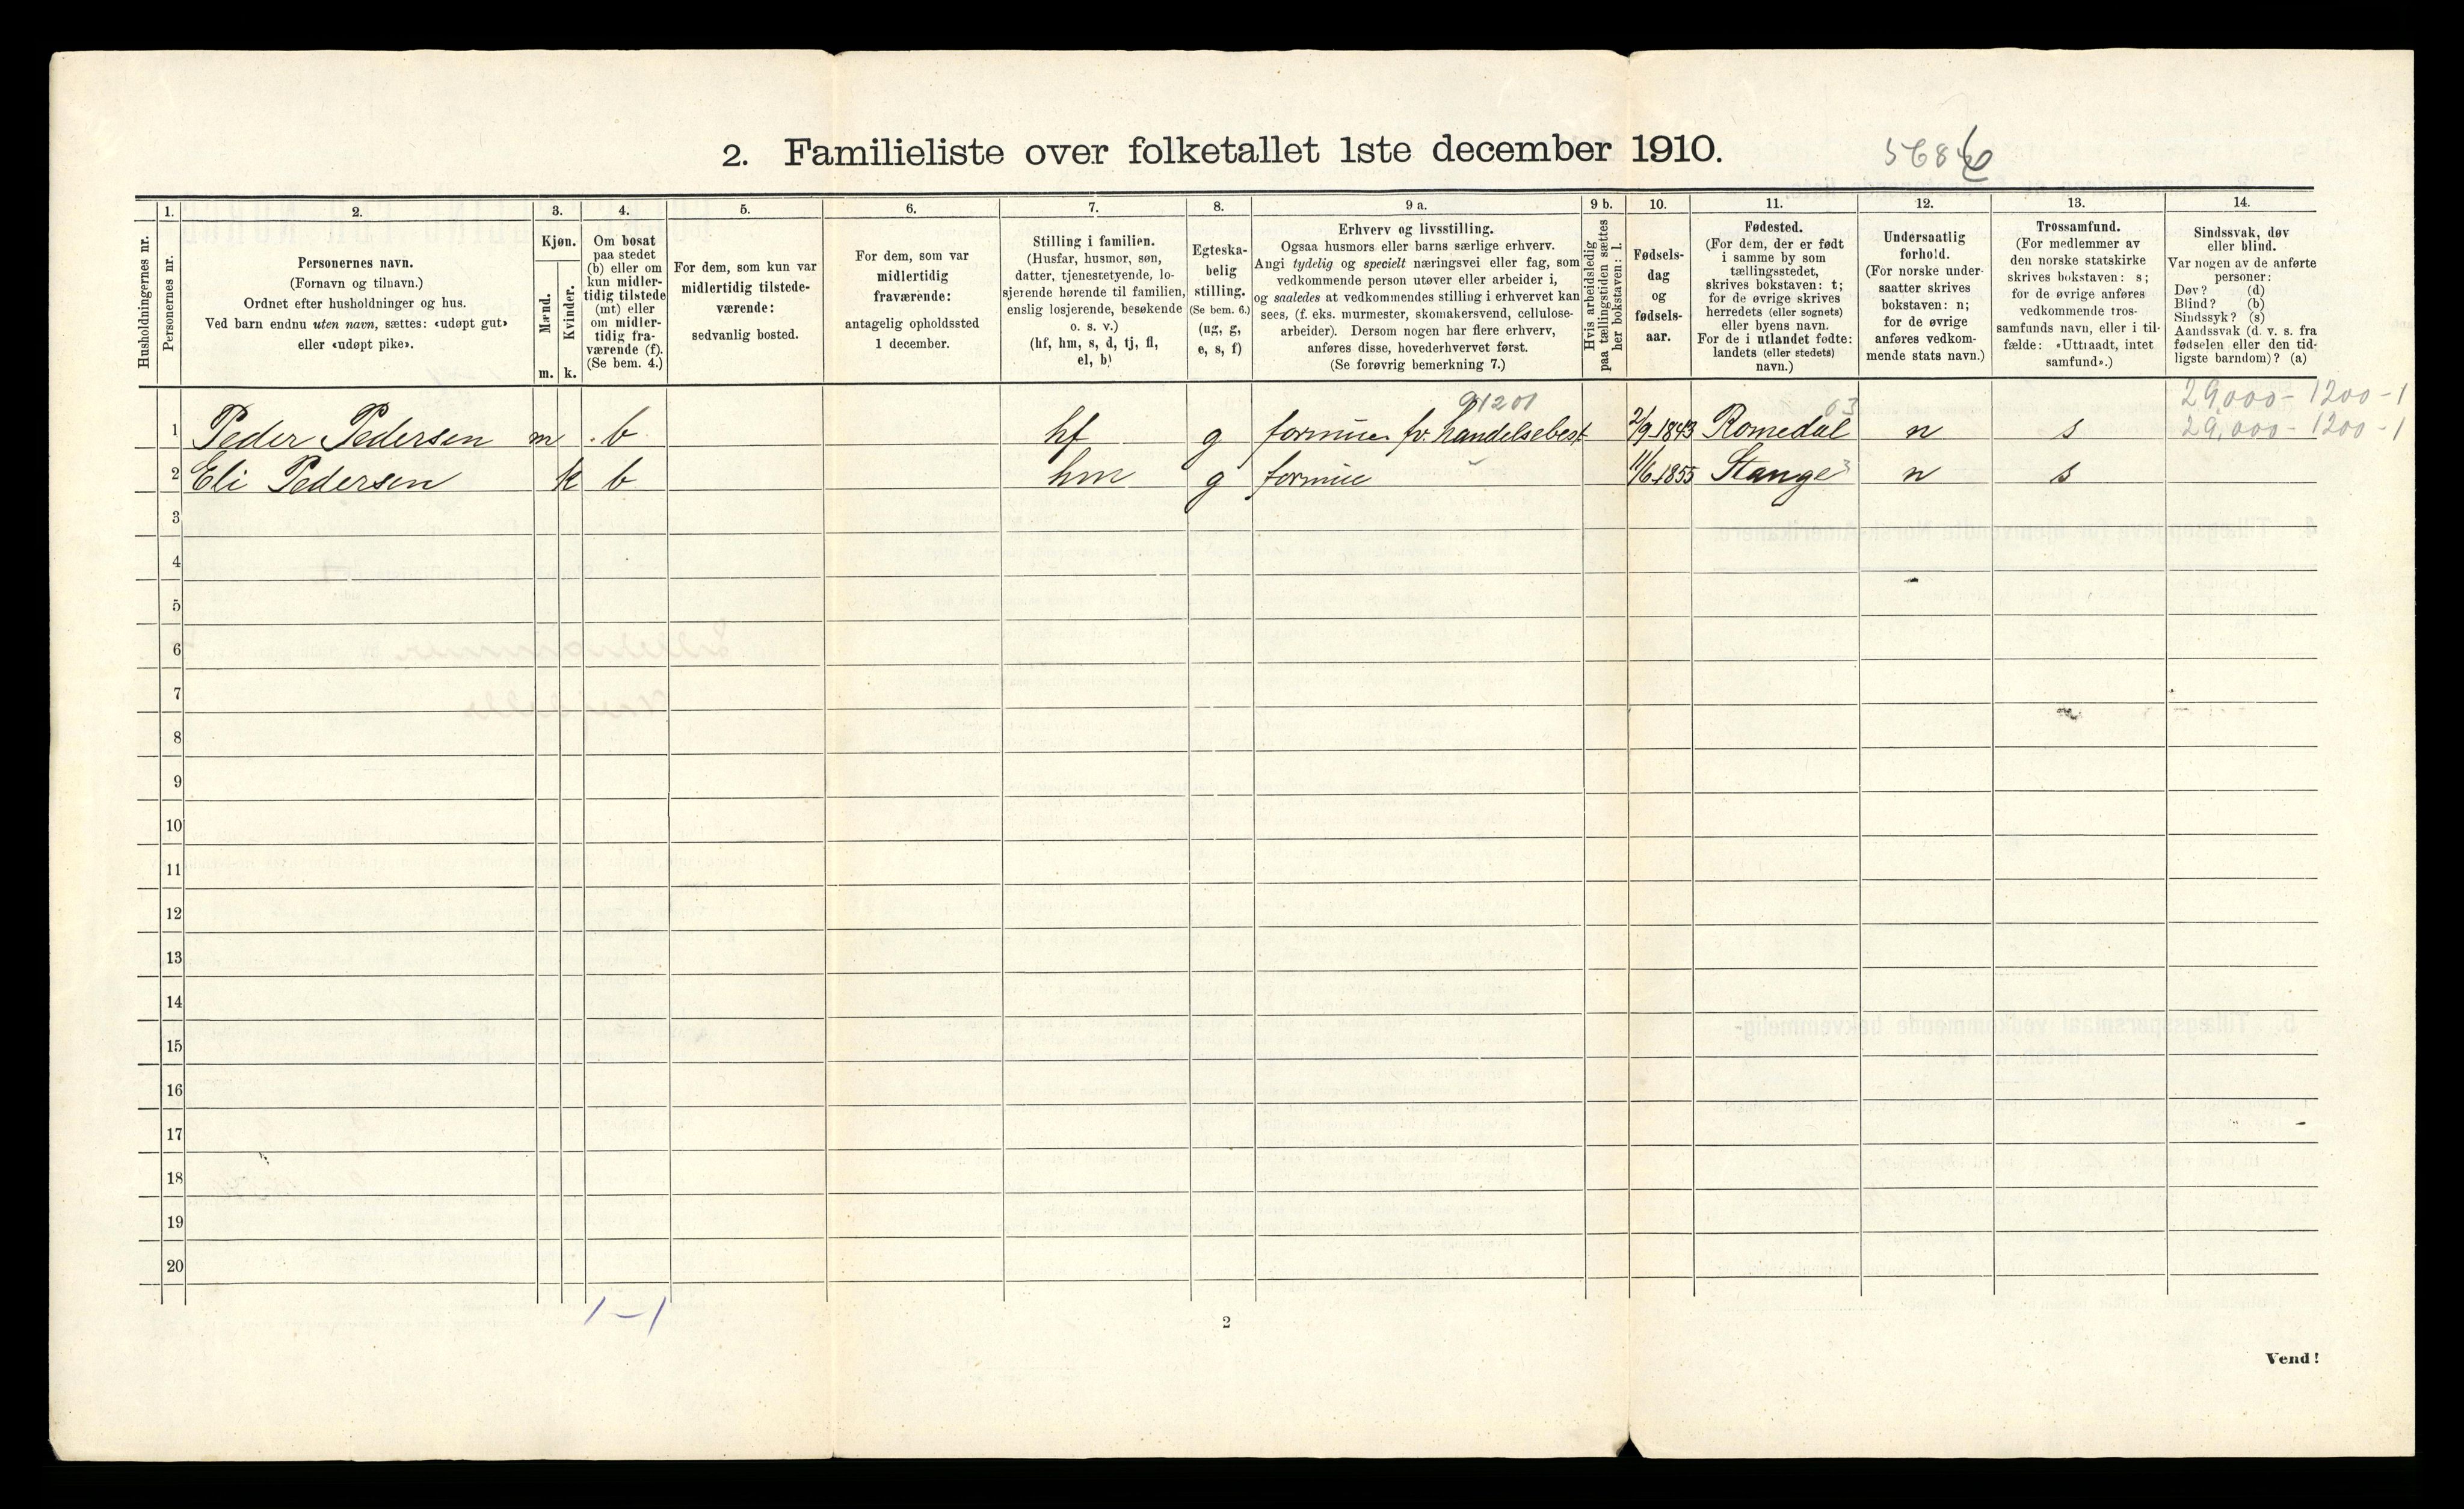 2. Familieliste over folketallet 1ste december 1910.
Husholdningernes nr.
1.
Personernes nr.
2.
Personernes navn.
(Fornavn og tilnavn.)
Ordnet efter husholdninger og hus.
Ved barn endnu uten navn, sættes: «udøpt gut»
eller «udøpt pike».
3.
Kjøn.
Mænd.
Kvinder.
m. k.
4.
Om bosat
paa stedet
(b) eller om
kun midler-
tidig tilstede
(mt) eller
om midler-
tidig fra-
værende (f).
(Se bem. 4.)
5.
For dem, som kun var
midlertidig tilstede-
værende:
sedvanlig bosted.
6.
For dem, som var
midlertidig
fraværende:
antagelig opholdssted
1 december.
7.
Stilling i familien.
(Husfar, husmor, søn,
datter, tjenestetyende, lo-
sjerende hørende til familien,
enslig losjerende, besøkende
o. s. v.)
(hf, hm, s, d, tj, fl,
el, b)
8.
Egteska-
belig
stilling.
(Se bem. 6.)
(ug, g,
e, s, f)
9 a.
Erhverv og livsstilling.
Ogsaa husmors eller barns særlige erhverv.
Angi tydelig og specielt næringsvei eller fag, som
vedkommende person utøver eller arbeider i,
og saaledes at vedkommendes stilling i erhvervet kan
sees, (f. eks. murmester, skomakersvend, cellulose-
arbeider). Dersom nogen har flere erhverv,
anføres disse, hovederhvervet først.
(Se forøvrig bemerkning 7.)
9 b.
Hvis arbeidsledig
paa tællingstiden sættes
her bokstaven: l.
10.
Fødsels-
dag
og
fødsels-
aar.
11.
Fødested.
(For dem, der er født
i samme by som
tællingsstedet,
skrives bokstaven: t;
for de øvrige skrives
herredets (eller sognets)
eller byens navn.
For de i utlandet fødte:
landets (eller stedets)
navn.)
12.
Undersaatlig
forhold.
(For norske under-
saatter skrives
bokstaven: n;
for de øvrige
anføres vedkom-
mende stats navn.)
13.
Trossamfund.
(For medlemmer av
den norske statskirke
skrives bokstaven: s;
for de øvrige anføres
vedkommende tros-
samfunds navn, eller i til-
fælde: «Uttraadt, intet
samfund».)
14.
Sindssvak, døv
eller blind.
Var nogen av de anførte
personer:
Døv? (d)
Blind? (b)
Sindssyk? (s)
Aandssvak (d. v. s. fra
fødselen eller den tid-
ligste barndom)? (a)
91201 29,000 - 1200 - 1
1 Peder Pedersen m b hf g formue fv. handelsbest 2/9 1843 Romedal 03 n s 29,000 - 1200 - 1
2 Eli Pedersen k b hm g formue 11/6 1855 Stange 3 n s
3
4
5
6
7
8
9
10
11
12
13
14
15
16
17
18
19
20
1 - 1
2
Vend!